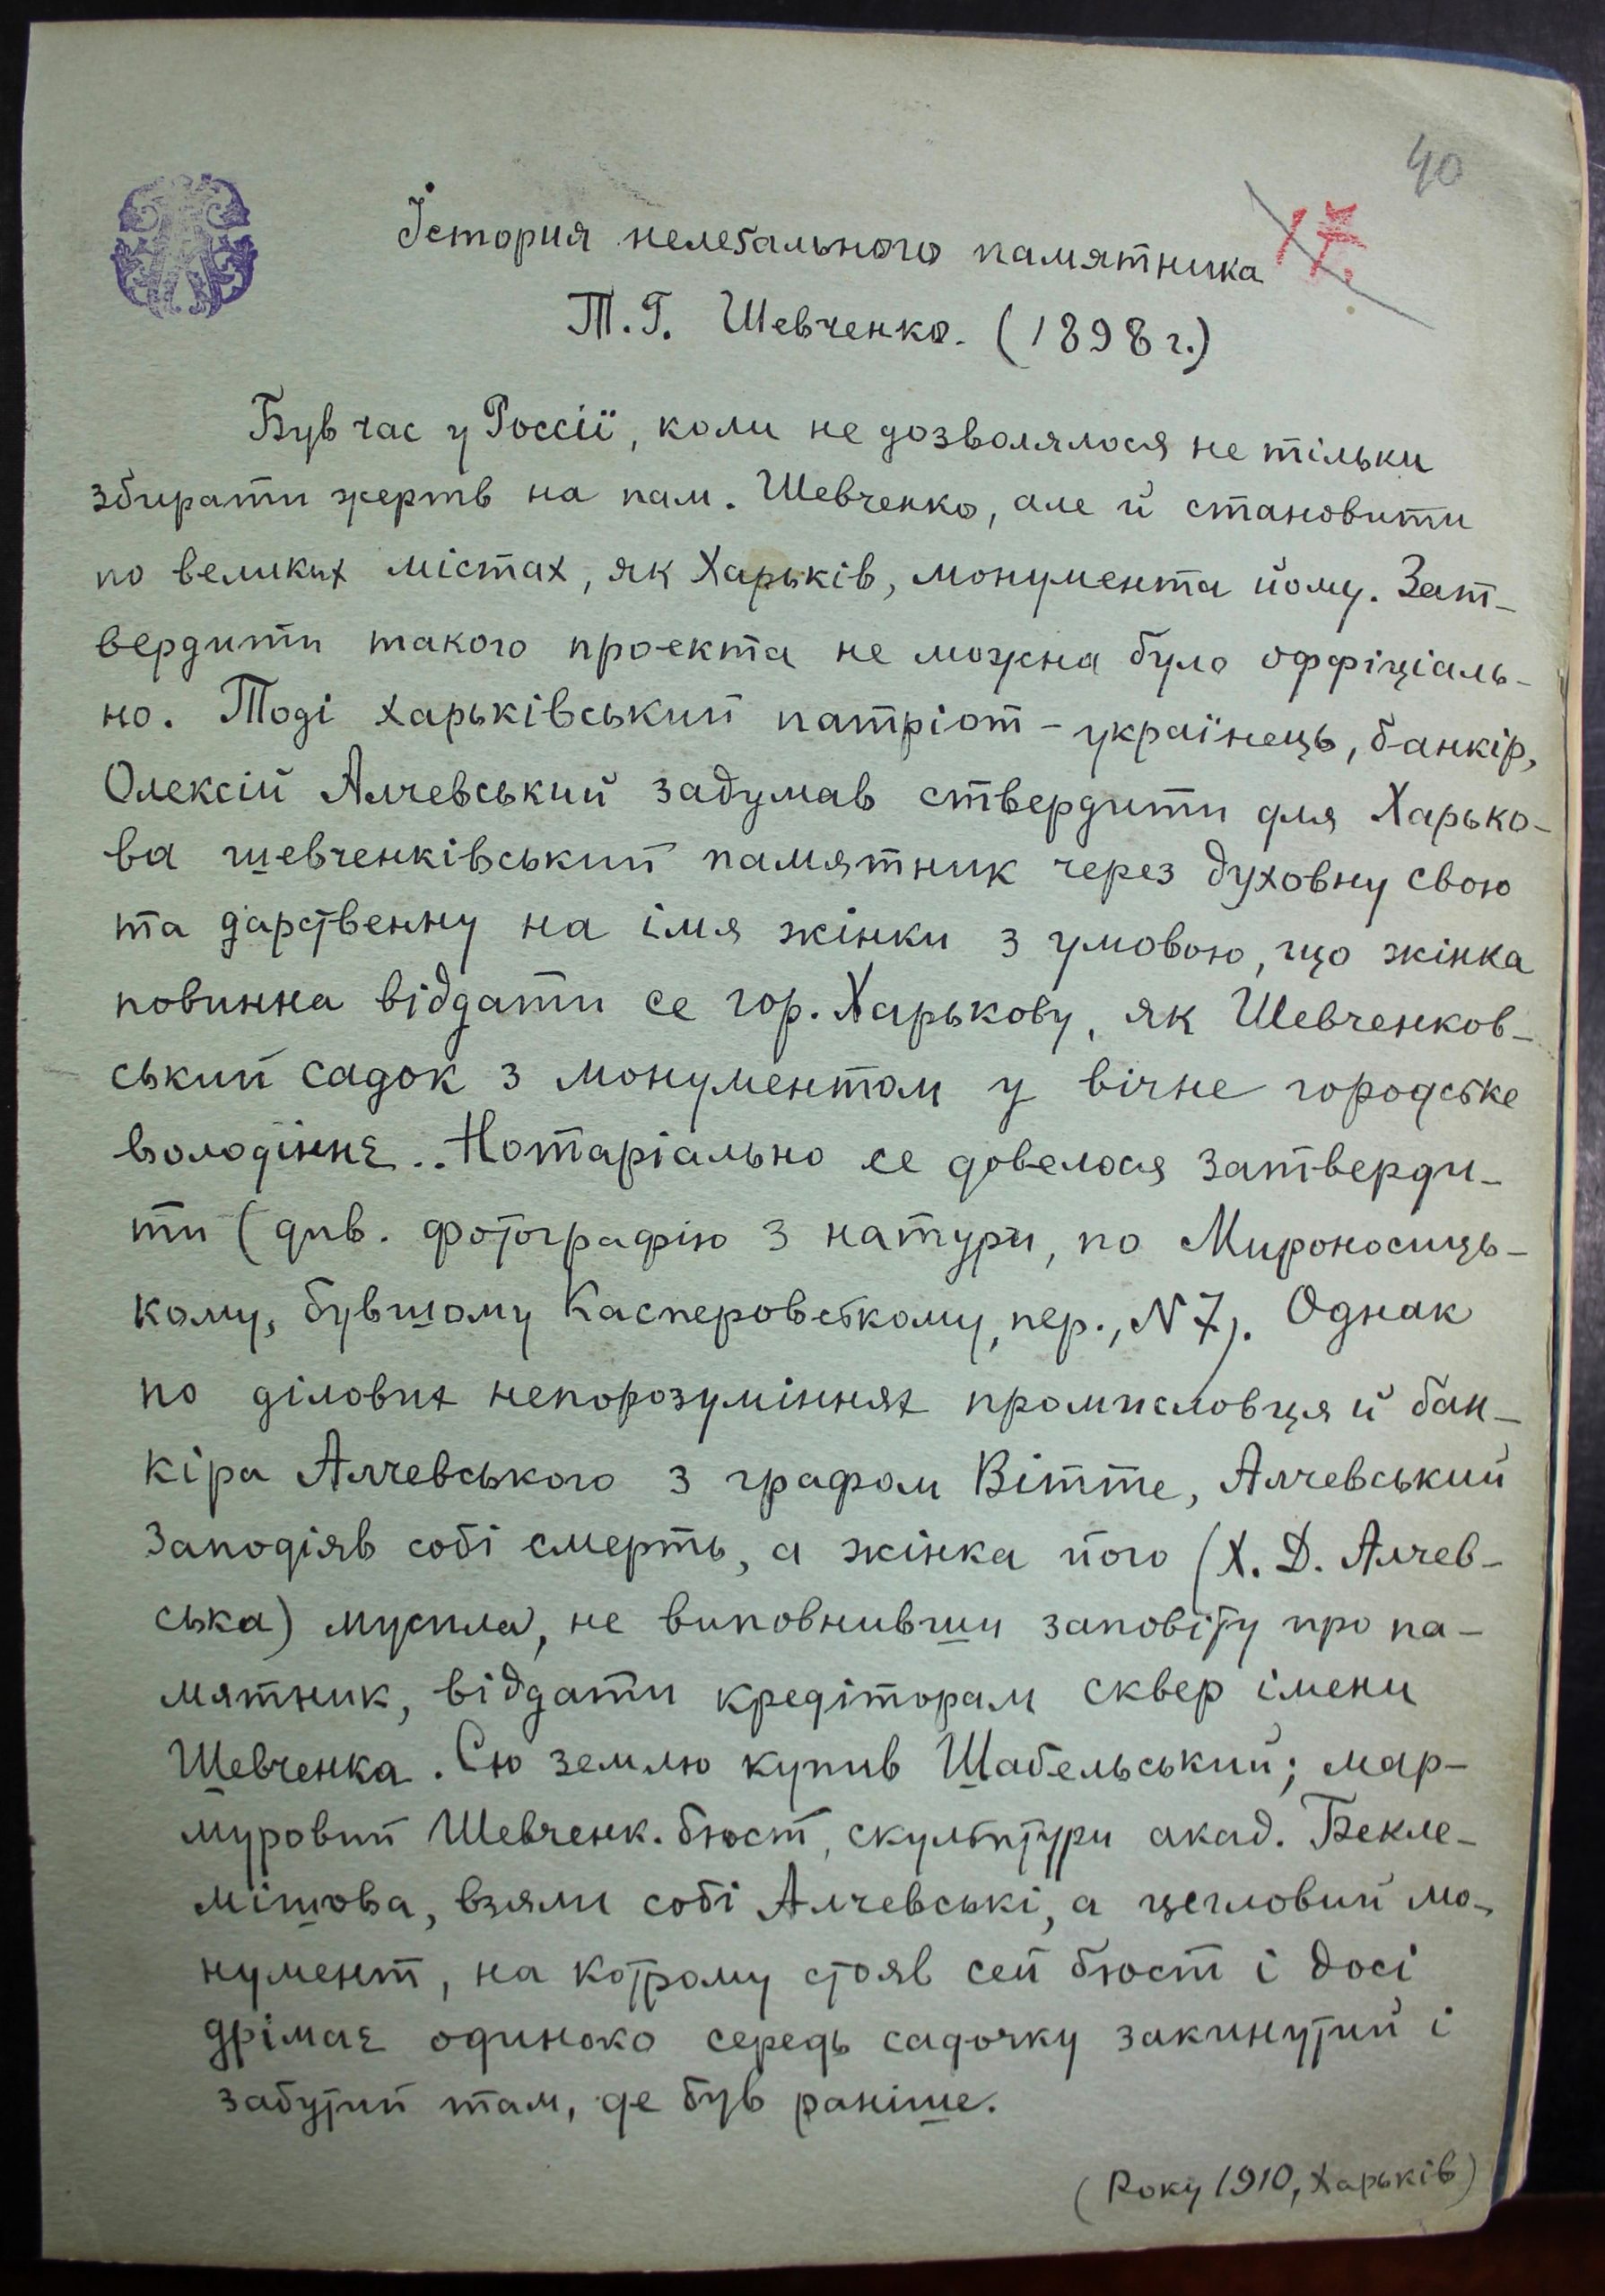 40
Їстория нелегального памятника
17.
Т. Г. Шевченко. (1898 г.)
Був час у Россії, коли не дозволялося не тільки
збирати жертв на пам. Шевченко, але й становити
по великих містах, як Харьків, монумента йому. Зат-
вердити такого проекта не можна було оффіціаль-
но. Тоді харьківський патріот-українець, банкір,
Олексій Алчевський задумав ствердити для Харько-
ва шевченківський памятник через духовну свою
та дарственну на імя жінки з умовою, що жінка
повинна відати се гор. Харькову, як Шевченков-
ський садок з монументом у вічне городське
володіннє.. Нотаріально се довелося затверди-
ти (див. фотографію з натури, по Мироносиць-
кому, бувшому Касперовському, пер., N 7). Однак
по ділових непорозуміннях промисловця й бан-
кіра Алчевського з графом Вітте, Алчевський
заподіяв собі смерть, а жінка його (Х. Д. Алчев-
ська) мусила, не виповнивши заповіту про па-
мятник, віддати кредіторам сквер імени
Шевченка. Сю землю купив Шабельський; мар-
муровий Шевченк. бюст, скульптури акад. Бекле-
мішова, взяли собі Алчевські, а цегловий мо-
нумент, на котрому стояв сей бюст і досі
дрімає одиноко середь садочку закинутий і
забутий там, де був раніше.
(Року 1910, Харьків)